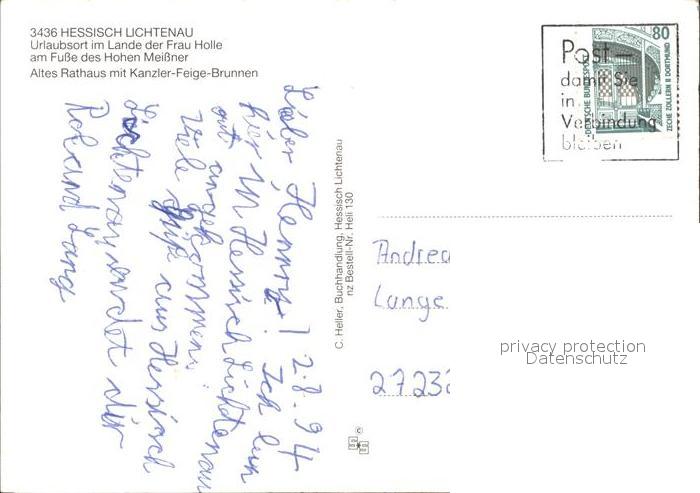 3436 HESSISCH LICHTENAU
Urlaubsort im Lande der Frau Holle
am Fuße des Hohen Meißner
Altes Rathaus mit Kanzler-Feige-Brunnen
Post —
damit Sie
in
Verbindung
bleiben
80
DEUTSCHE BUNDESPOST
ZECHE ZOLLERN II DORTMUND
2.8.94
Lieber Henning! Ich bin
hir in Hessisch Lichtenau
gut angekommen.
Viele Grüße aus Hessisch
Lichtenau sendet dir
Roland Lang
C. Heller, Buchhandlung, Hessisch Lichtenau
nz Bestell-Nr. Heli 130
Andrea
Lange
2723
privacy protection
Datenschutz